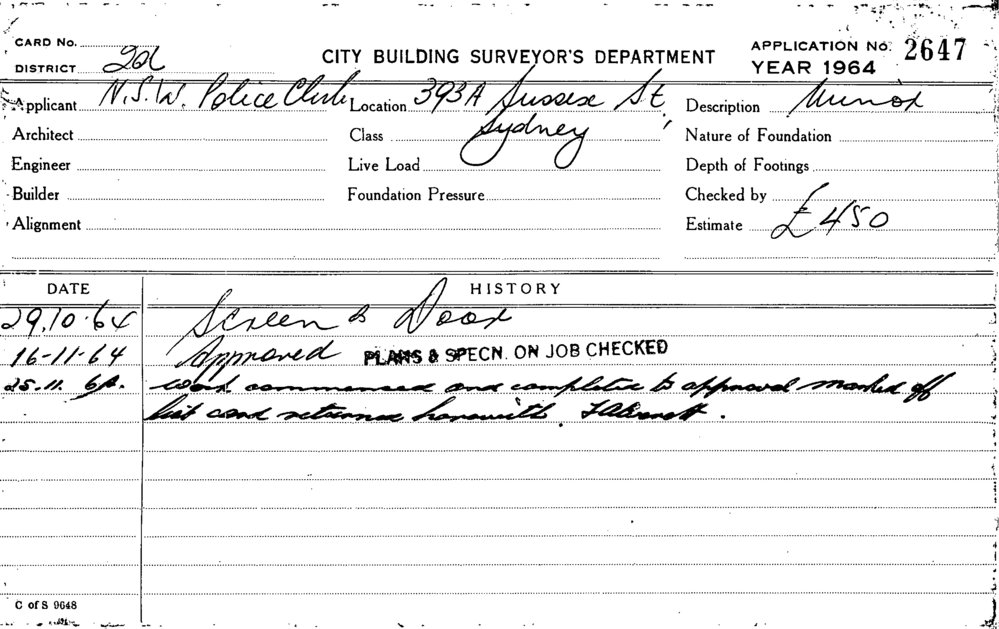 CARD No.
DISTRICT 2a CITY BUILDING SURVEYOR'S DEPARTMENT APPLICATION No. 2647
YEAR 1964
Applicant N.S.W. Police Club Location 393A Sussex St. Description Minor
Architect Class Sydney Nature of Foundation
Engineer Live Load Depth of Footings
Builder Foundation Pressure Checked by
Alignment Estimate £450
DATE HISTORY
29.10.64 Screen & Door
16-11-64 Approved PLANS & SPECN. ON JOB CHECKED
25.11.64. Work commenced and completed to approval marked off
list card returned herewith.
C of S 9648